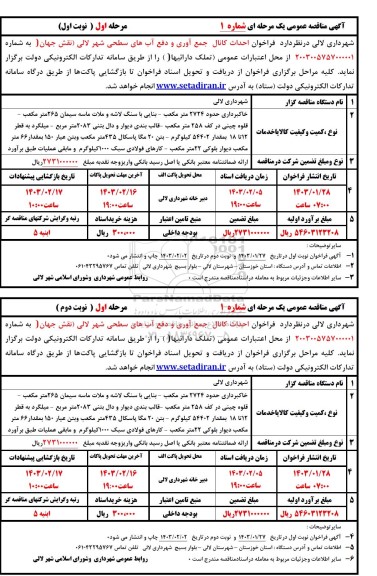 آگهی مناقصه عمومی یک مرحله ای شماره ۱ مرحله اول ( نوبت اول)
شهرداری لالی درنظردارد فراخوان احداث کانال جمع آوری و دفع آب های سطحی شهر لالی (نقش جهان) به شماره
۲۰۰۳۰۰۵۷۵۷۰۰۰۰۰۱ از محل اعتبارات عمومی (تملک دارائیها) را از طریق سامانه تدارکات الکترونیکی دولت برگزار
نماید. کلیه مراحل برگزاری فراخوان از دریافت و تحویل اسناد فراخوان تا بازگشایی پاکت‌ها از طریق درگاه سامانه
تدارکات الکترونیکی دولت (ستاد) به آدرس www.setadiran.ir انجام خواهد شد.
۱ نام دستگاه مناقصه گزار شهرداری لالی
۲ نوع ،کمیت و کیفیت کالا یا خدمات خاکبرداری حدود ۲۷۲۴ متر مکعب - بنایی با سنگ لاشه و ملات ماسه سیمان ۲۶۵متر مکعب -
قلوه چینی در کف ۲۵۸ متر مکعب -قالب بندی دیوار و دال بتنی ۲۰۸۳متر مربع - میلگرد به قطر
۱۲تا ۱۸ بمقدار ۵۴۴۰۲ کیلوگرم - بتن ۲۰ مگا پاسکال ۴۳۵متر مکعب وبتن عیار ۱۵۰ بمقدار۶۶ متر
مکعب دیوار بلوکی ۲۲متر مکعب - کارهای فولادی سبک ۱۰۰۰کیلوگرم و مابقی عملیات طبق برآورد
۳ نوع ومبلغ تضمین شرکت در مناقصه ارائه ضمانتنامه معتبر بانکی یا اصل رسید بانکی واریزوجه نقدبه مبلغ ۲۷۳۱۰۰۰۰۰۰ریال
۴ تاریخ انتشار فراخوان زمان دریافت اسناد محل تحویل پاکت الف آخرین مهلت تحویل پاکات تاریخ بازگشایی پیشنهادات
۱۴۰۳/۰۱/۲۸ ۱۴۰۳/۰۲/۰۵ دبیر خانه شهرداری لالی ۱۴۰۳/۰۲/۱۶ ۱۴۰۳/۰۲/۱۷
ساعت ۰۷:۰۰ ساعت ۱۹:۰۰ ساعت ۱۹:۰۰ ساعت ۱۰:۰۰
۵ مبلغ برآورد اولیه مبلغ تضمین منبع تامین اعتبار هزینه خریداسناد رتبه وگرایش شرکتهای مناقصه گر
۵۴۶۰۳۱۲۳۲۰۸ ریال ۲۷۳۱۰۰۰۰۰۰ریال بودجه داخلی ۳۰۰۰۰۰ ریال ابنیه ۵
سایر توضیحات:
۱- آگهی فراخوان نوبت اول درتاریخ ۱۴۰۳/۰۱/۲۷ و نوبت دوم درتاریخ ۱۴۰۳/۰۲/۰۲ چاپ و انتشار می شود.
۲- اطلاعات تماس و آدرس دستگاه : استان خوزستان - شهرستان لالی - بلوار بسیج شهرداری لالی تلفن تماس ۴۳۲۹۵۷۶۷-۰۶۱
۳- سایر اطلاعات وجزئیات مربوط به معامله دراسنادمناقصه مندرج است . روابط عمومی شهرداری وشورای اسلامی شهر لالی
آگهی مناقصه عمومی یک مرحله ای شماره ۱ مرحله اول ( نوبت دوم )
شهرداری لالی درنظردارد فراخوان احداث کانال جمع آوری و دفع آب های سطحی شهر لالی (نقش جهان) به شماره
۲۰۰۳۰۰۵۷۵۷۰۰۰۰۰۱ از محل اعتبارات عمومی (تملک دارائیها) را از طریق سامانه تدارکات الکترونیکی دولت برگزار
نماید. کلیه مراحل برگزاری فراخوان از دریافت و تحویل اسناد فراخوان تا بازگشایی پاکت‌ها از طریق درگاه سامانه
تدارکات الکترونیکی دولت (ستاد) به آدرس www.setadiran.ir انجام خواهد شد.
۱ نام دستگاه مناقصه گزار شهرداری لالی
۲ نوع ،کمیت و کیفیت کالا یا خدمات خاکبرداری حدود ۲۷۲۴ متر مکعب - بنایی با سنگ لاشه و ملات ماسه سیمان ۲۶۵متر مکعب -
قلوه چینی در کف ۲۵۸ متر مکعب -قالب بندی دیوار و دال بتنی ۲۰۸۳متر مربع - میلگرد به قطر
۱۲تا ۱۸ بمقدار ۵۴۴۰۲ کیلوگرم - بتن ۲۰ مگا پاسکال ۴۳۵متر مکعب وبتن عیار ۱۵۰ بمقدار۶۶ متر
مکعب دیوار بلوکی ۲۲متر مکعب - کارهای فولادی سبک ۱۰۰۰کیلوگرم و مابقی عملیات طبق برآورد
۳ نوع ومبلغ تضمین شرکت در مناقصه ارائه ضمانتنامه معتبر بانکی یا اصل رسید بانکی واریزوجه نقدبه مبلغ ۲۷۳۱۰۰۰۰۰۰ریال
۴ تاریخ انتشار فراخوان زمان دریافت اسناد محل تحویل پاکت الف آخرین مهلت تحویل پاکات تاریخ بازگشایی پیشنهادات
۱۴۰۳/۰۱/۲۸ ۱۴۰۳/۰۲/۰۵ دبیر خانه شهرداری لالی ۱۴۰۳/۰۲/۱۶ ۱۴۰۳/۰۲/۱۷
ساعت ۰۷:۰۰ ساعت ۱۹:۰۰ ساعت ۱۹:۰۰ ساعت ۱۰:۰۰
۵ مبلغ برآورد اولیه مبلغ تضمین منبع تامین اعتبار هزینه خریداسناد رتبه وگرایش شرکتهای مناقصه گر
۵۴۶۰۳۱۲۳۲۰۸ ریال ۲۷۳۱۰۰۰۰۰۰ریال بودجه داخلی ۳۰۰۰۰۰ ریال ابنیه ۵
سایر توضیحات:
۴- آگهی فراخوان نوبت اول درتاریخ ۱۴۰۳/۰۱/۲۷ و نوبت دوم درتاریخ ۱۴۰۳/۰۲/۰۲ چاپ و انتشار می شود.
۵- اطلاعات تماس و آدرس دستگاه : استان خوزستان - شهرستان لالی - بلوار بسیج شهرداری لالی تلفن تماس ۴۳۲۹۵۷۶۷-۰۶۱
۶- سایر اطلاعات وجزئیات مربوط به معامله دراسنادمناقصه مندرج است . روابط عمومی شهرداری وشورای اسلامی شهر لالی